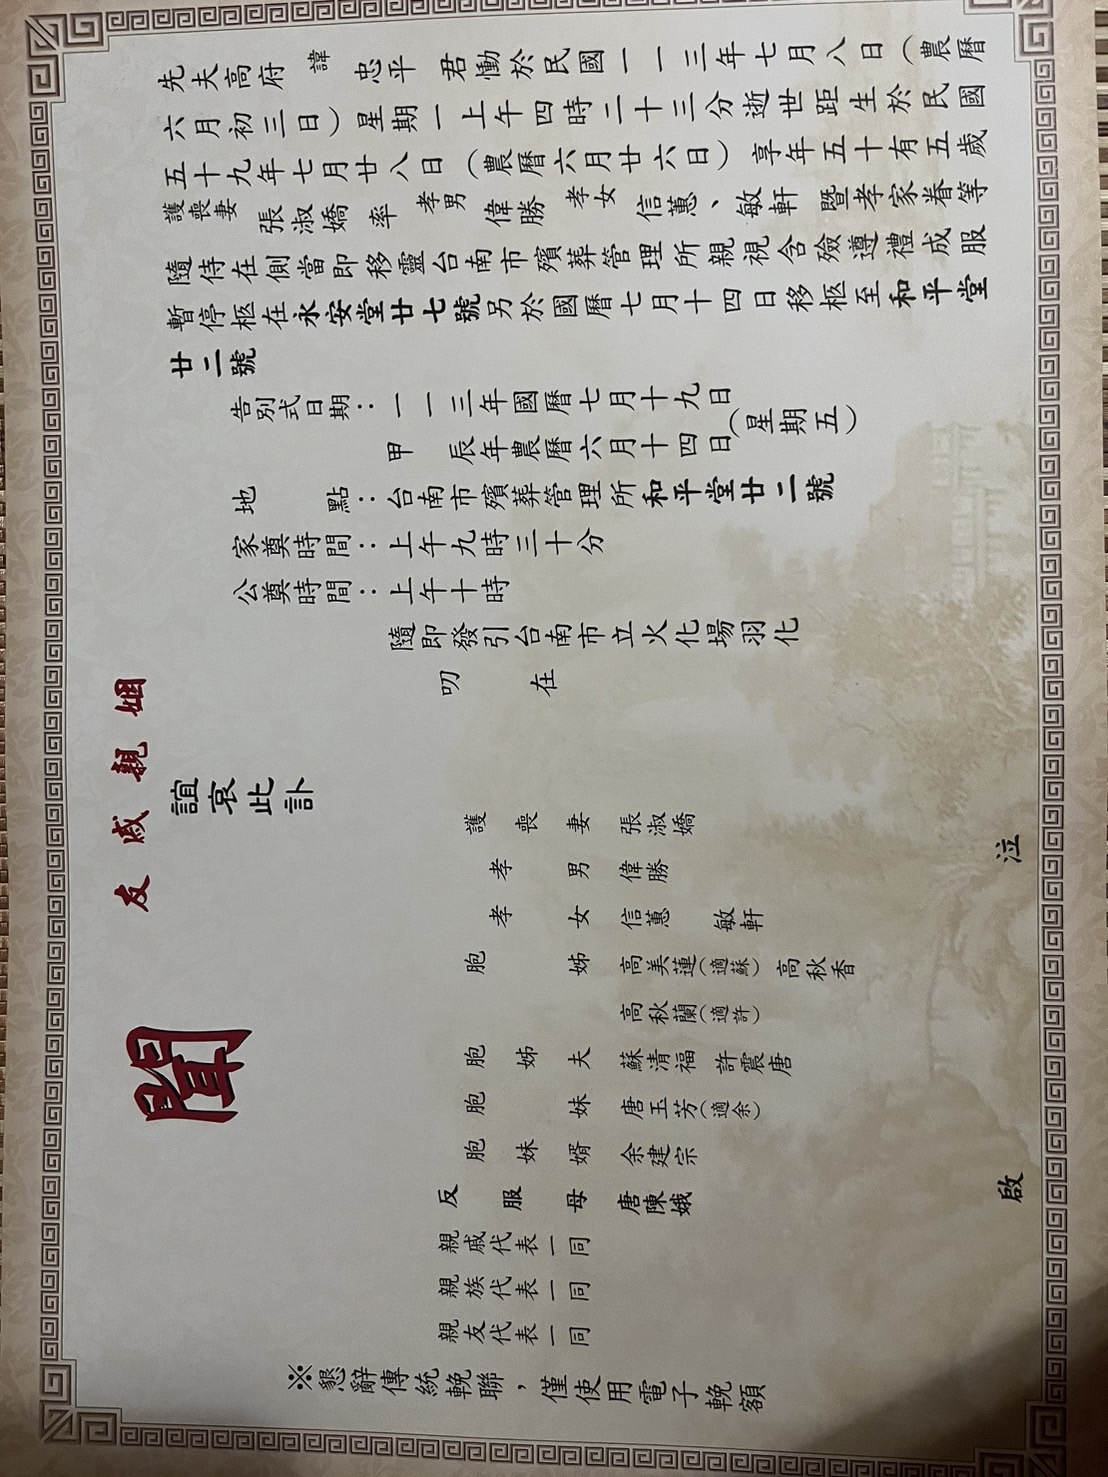 先夫高府諱忠平君慟於民國一一三年七月八日（農曆
六月初三日）星期一上午四時二十三分逝世距生於民國
五十九年七月廿八日（農曆六月廿六日）享年五十有五歲
護喪妻張淑嬌率孝男偉勝孝女信蕙、敏軒暨孝家眷等
隨侍在側當即移靈台南市殯葬管理所親視含殮遵禮成服
暫停柩在永安堂廿七號另於國曆七月十四日移柩至和平堂
廿二號
告別式日期：一一三年國曆七月十九日
甲辰年農曆六月十四日
（星期五）
地點：台南市殯葬管理所和平堂廿二號
家奠時間：上午九時三十分
公奠時間：上午十時
隨即發引台南市立火化場羽化
叨在
姻親戚友
誼哀此訃
聞
護喪妻張淑嬌
孝男偉勝
孝女信蕙 敏軒
胞姊高美蓮（適蘇）高秋香
高秋蘭（適許）
胞姊夫蘇清福 許震唐
胞妹唐玉芳（適余）
胞妹婿余建宗
反服母唐陳娥
親戚代表一同
親族代表一同
親友代表一同
泣啟
※懇辭傳統輓聯，僅使用電子輓額